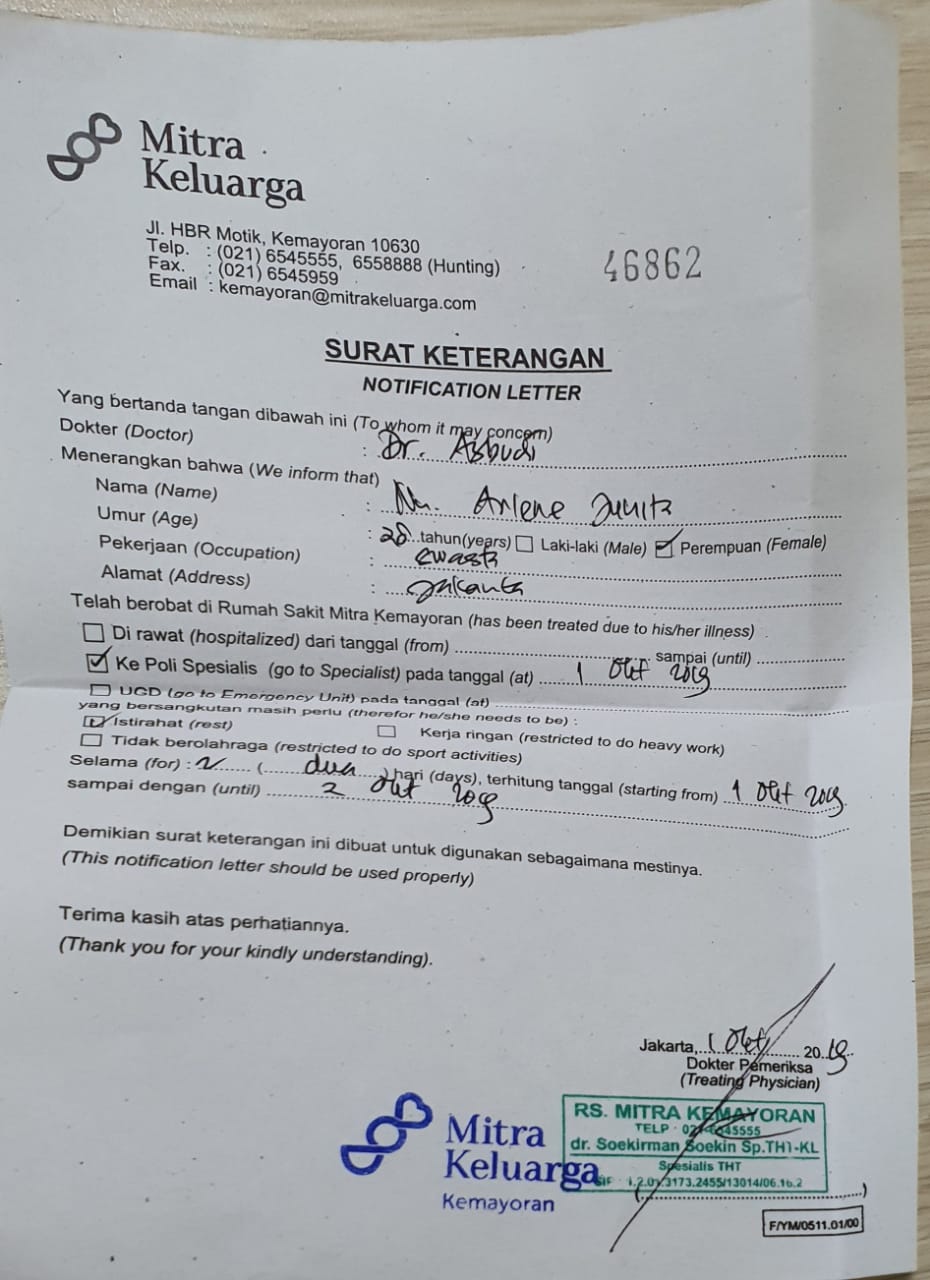 Mitra
Keluarga
Jl. HBR Motik, Kemayoran 10630
Telp. : (021) 6545555, 6558888 (Hunting)
Fax. : (021) 6545959
Email : kemayoran@mitrakeluarga.com
46862
SURAT KETERANGAN
NOTIFICATION LETTER
Yang bertanda tangan dibawah ini (To whom it may concern)
Dokter (Doctor) : Dr. Asbudi
Menerangkan bahwa (We inform that)
Nama (Name) : Arlene Junita
Umur (Age) : 28 tahun(years) Laki-laki (Male) Perempuan (Female)
Pekerjaan (Occupation) : swasta
Alamat (Address) : Jakarta
Telah berobat di Rumah Sakit Mitra Kemayoran (has been treated due to his/her illness)
Di rawat (hospitalized) dari tanggal (from) sampai (until)
Ke Poli Spesialis (go to Specialist) pada tanggal (at) 1 Okt 2019
UGD (go to Emergency Unit) pada tanggal (at)
yang bersangkutan masih perlu (therefor he/she needs to be) :
Istirahat (rest) Kerja ringan (restricted to do heavy work)
Tidak berolahraga (restricted to do sport activities)
Selama (for) : 2 (dua) hari (days), terhitung tanggal (starting from) 1 Okt 2019
sampai dengan (until) 2 Okt 2019
Demikian surat keterangan ini dibuat untuk digunakan sebagaimana mestinya.
(This notification letter should be used properly)
Terima kasih atas perhatiannya.
(Thank you for your kindly understanding).
Jakarta, 1 Okt 2019
Dokter Pemeriksa
(Treating Physician)
RS. MITRA KEMAYORAN
TELP : 021-6545555
dr. Soekirman Soekin Sp.THT-KL
Spesialis THT
Mitra
Keluarga
Kemayoran
F/YM/0511.01/00